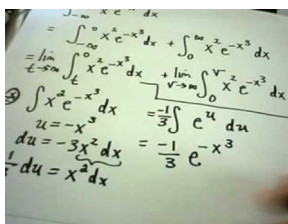 ∫₋∞ x² e^{-x³} dx
= ∫₋∞⁰ x² e^{-x³} dx + ∫₀^∞ x² e^{-x³} dx
= lim_{t→-∞} ∫ₜ⁰ x² e^{-x³} dx + lim_{r→∞} ∫₀^r x² e^{-x³} dx
∫ x² e^{-x³} dx = -1/3 ∫ e^u du
u = -x³
du = -3x² dx = -1/3 e^{-x³}
du = x² dx